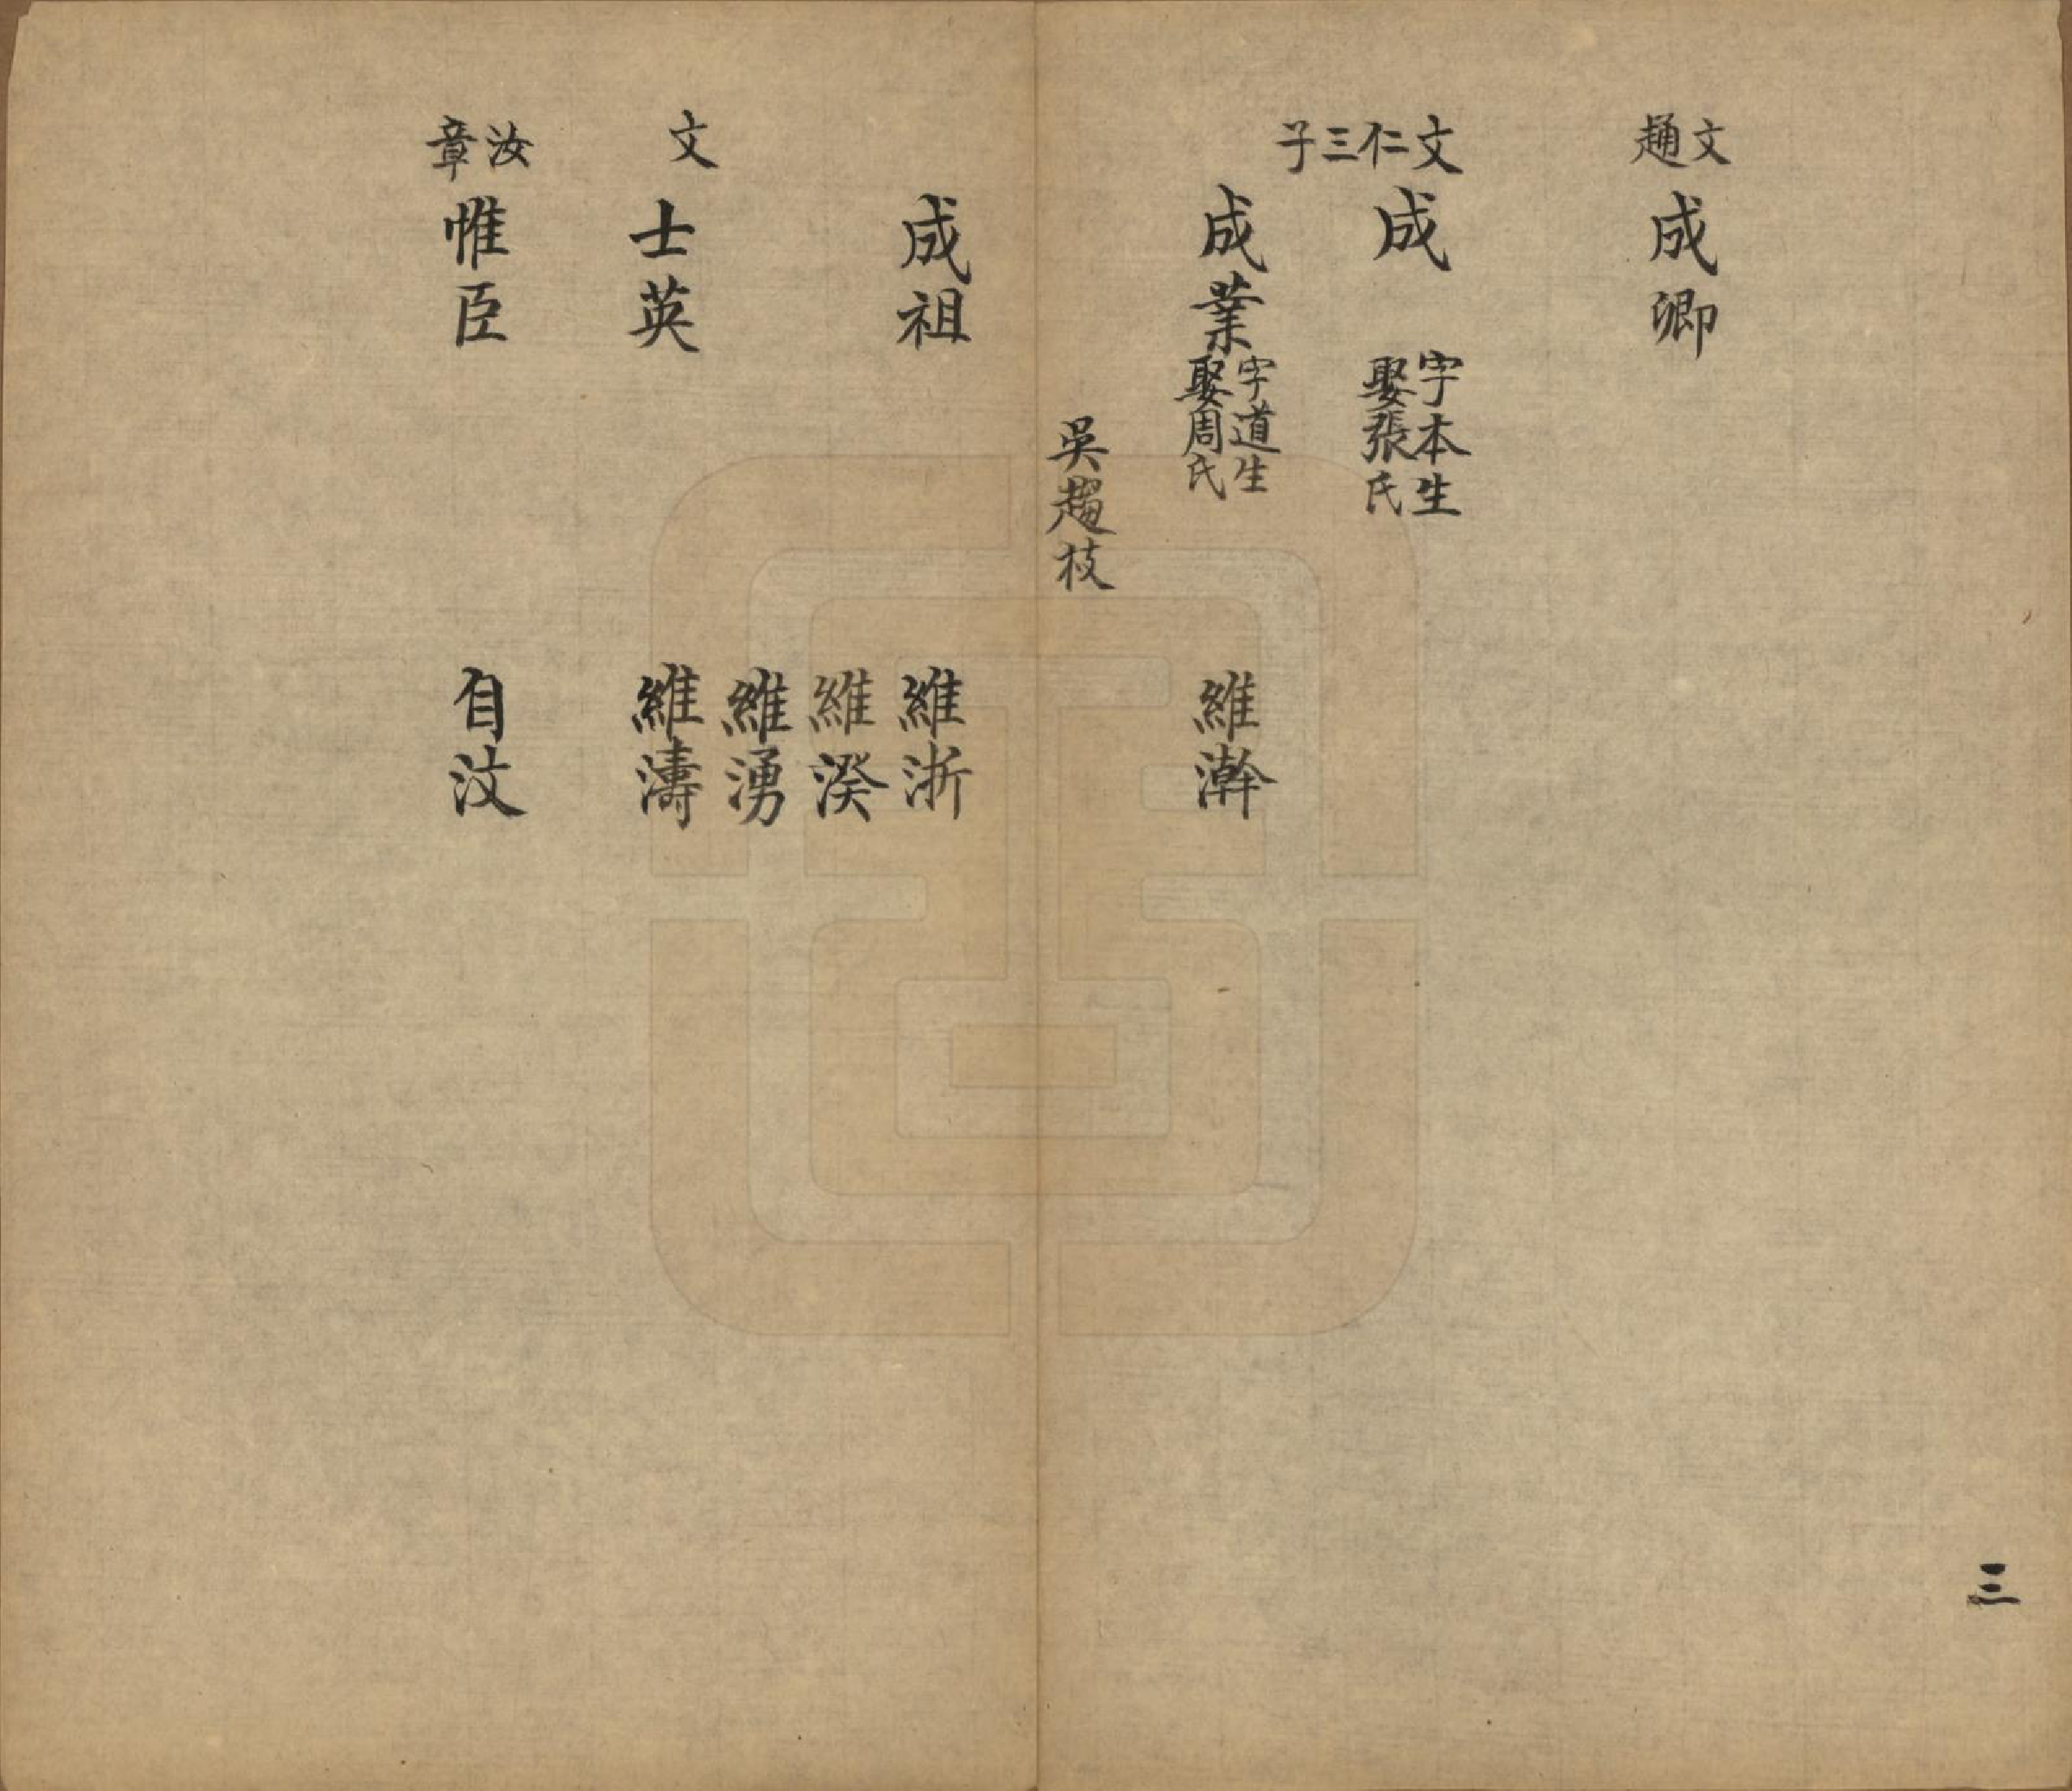 文趙
成卿
文仁三子
成
字本生
娶張氏
成業
字道生
娶周氏
維澣
吳趨枝
成祖
維浙
維湀
維湧
文
士英
維濤
汝章
惟臣
自汶
三